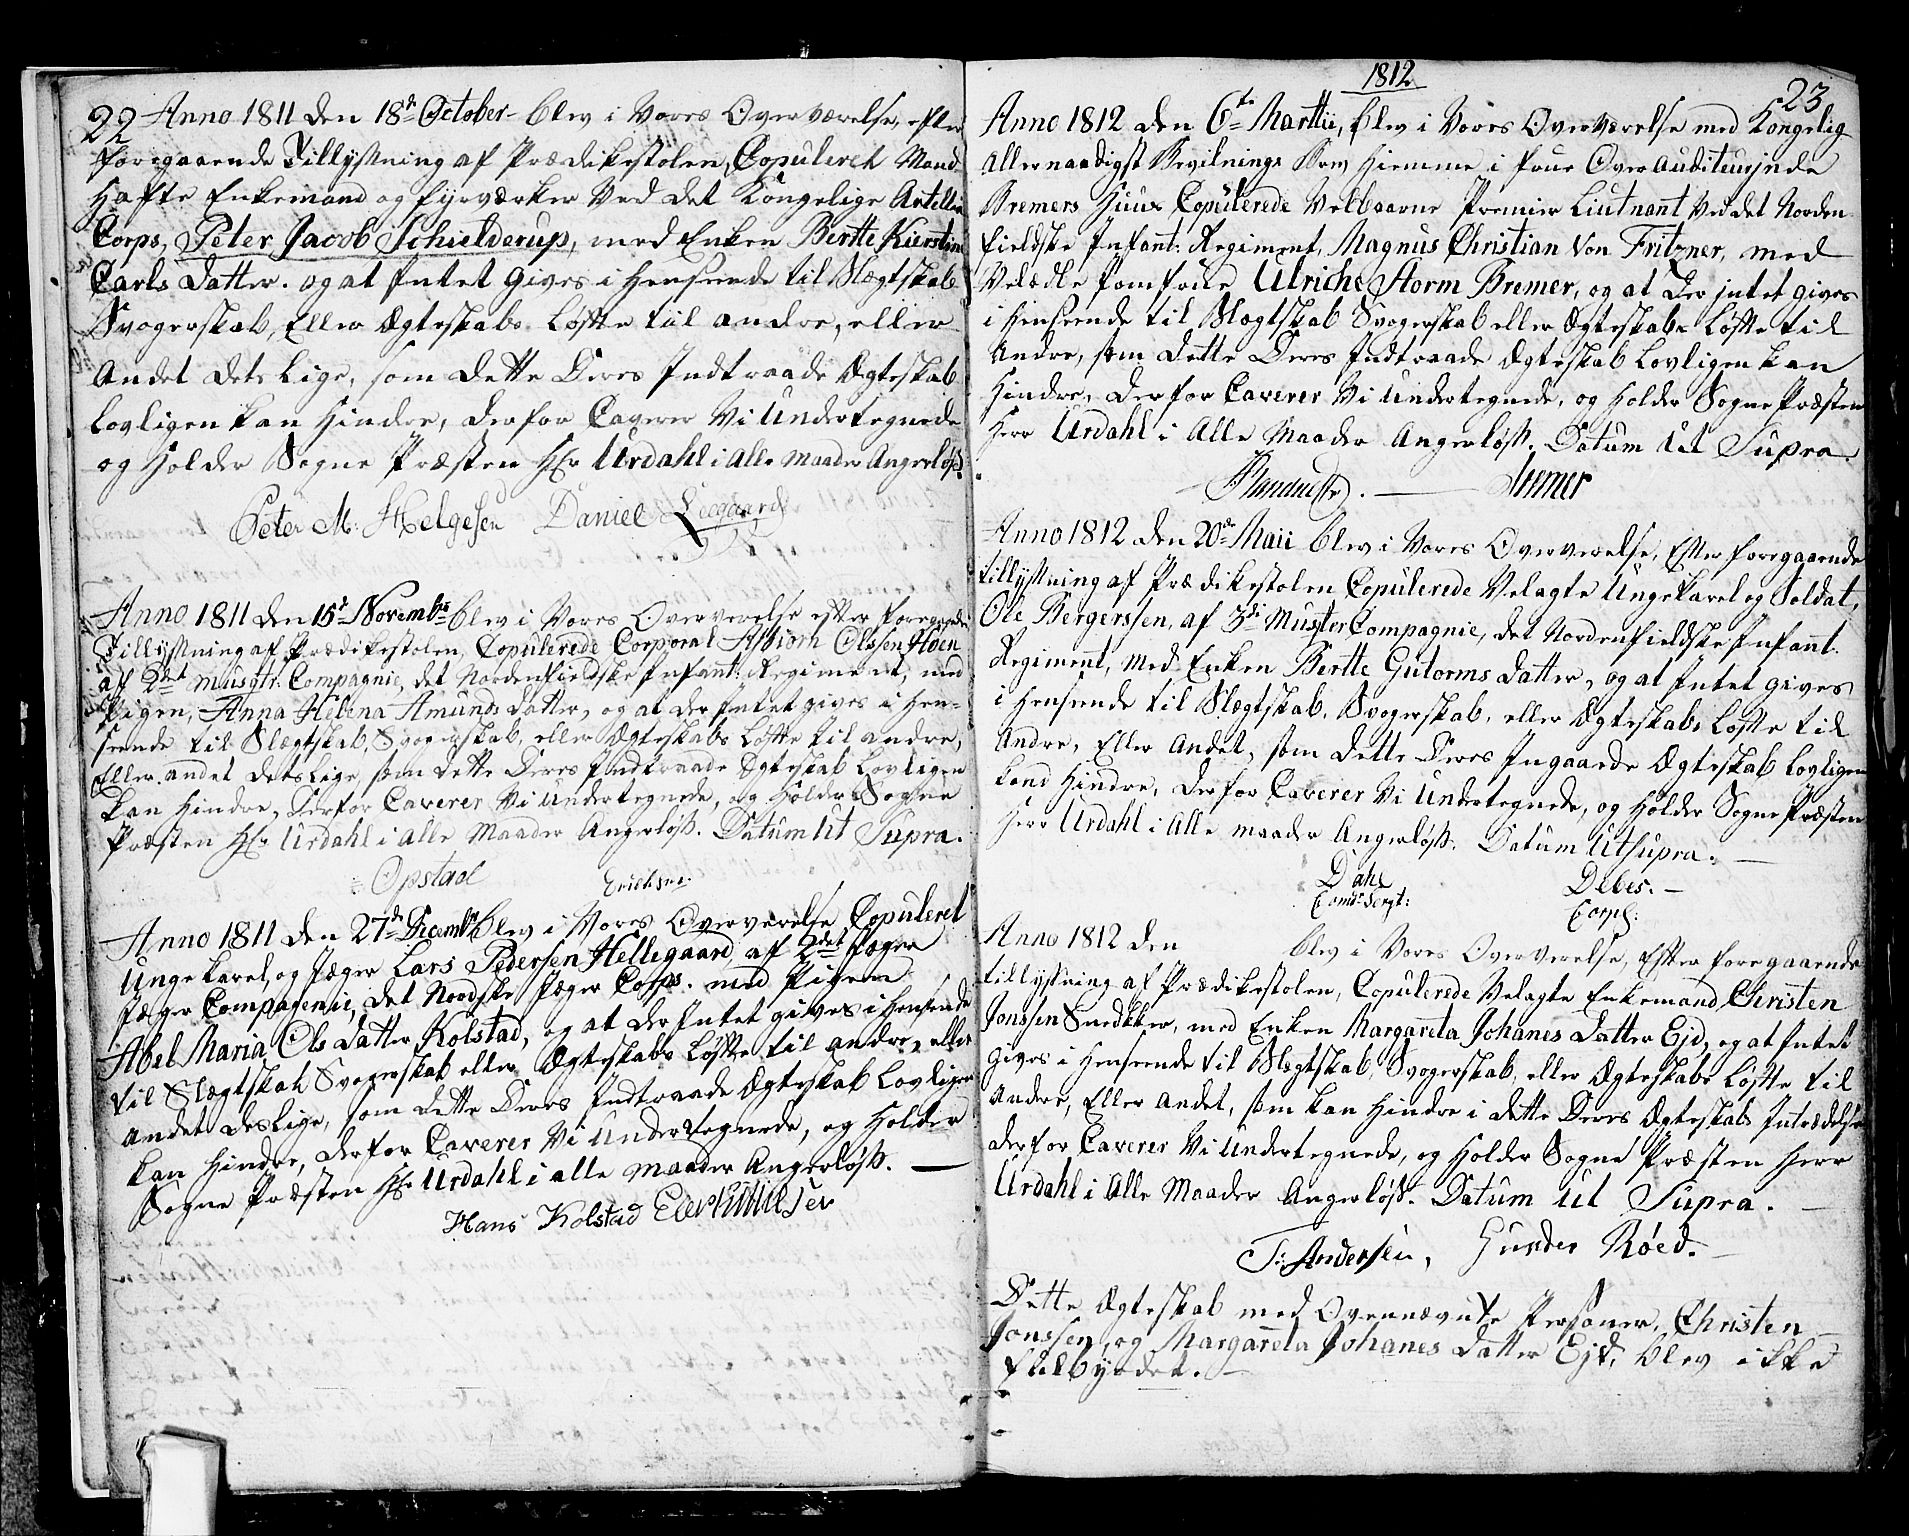 22 Anno 1811 den 18de October blev i Vores Overværelse, efter
foregaaende Tillysning af Prædikestolen, Copuleret Mand-
hafte Enkemand og Fyrværker Ved det Kongelige Artellerie
Corps, Peter Jacob Schielderup, med Enken Bertte Kierstine
Carls Datter. og at Intet Gives i Henseende til Slægtskab
Svogerskab, Eller Ægteskabs Løfte til andre, eller
Andet dets lige, som dette Deres Indtraade Ægteskab
lovligen kan Hindre, derfor Caverer Vi Undertegnede
og Holder Sogne Præsten Hr Urdahl i alle maader Angerløs.
Peter M: Helgesen Daniel
Anno 1811 den 15de Novembr blev i Vores Oververelse efter foregaaende
Tillysning af Prædikestolen, Copulerede Corporal Asbiørn Olssen Hoen
af 2det Musqtr. Compagnie, det Nordenfieldske Infant: Regiment, med
Pigen, Anna Helena Amunds Datter, og at der Intet gives i Hen-
seende til Slægtskab, Svogerskab, eller Ægteskabs Løfte til andre,
Eller andet dets lige, som dette Deres Indtraade Ægteskab Lovligen
kan Hindre, Derfor Caverer Vi Undertegnede, og Holder Sogne
Præsten Hr Urdahl i alle Maader Angerløss. Datum Ut Supra.
Opstad Erichsen.
Anno 1811 den 27de Decembr blev i Vores Oververelse Copuleret
Unge karel, og Jæger Lars Pedersen Hellegaard, af 2det Jæger
Jæger Compagenie, det Nordske Jæger Corps. med Pigen
Abel Maria Ols Datter Kolstad, og at der Intet gives i Henseende
til Slægtskab Svogerskab eller Ægteskabs Løfte til andre, eller
andet deslige, som dette Deres Indtraade Ægteskab Lovligen
kan Hindre, derfor Caverer Vi Undertegnede, og Holder
Sogne Præsten Hr Urdahl i alle maader Angerløss.
Hans Kolstad
1812
23
Anno 1812 den 6te Marttii, blev i Vores Overværelse med Kongelig
Allernaadigst Bevilnings Brev Hiemme i Frue Over Auditeurinde
Bremers Huus Copulerede Velbaarne Premier Liutnant Ved det Norden-
fieldske Infant: Regiment, Magnus Christian Von Fritzner, med
Velædle Jomfrue Ulriche Storm Bremer, og at der intet gives
i Henseende til Slægtskab Svogerskab eller Ægteskabs Løfte til
Andre, som dette Deres Indtraade Ægteskab Lovligen kan
Hindre, derfor Caverer Vi Undertegnede, og Holder Sogne Præsten
Herr Urdahl i Alle Maader Angerløss. Datum Ut Supra
Bremer
Anno 1812 den 20de Maii blev i Vores Oververelse, Efter foregaaende
tillysning af Prædikestolen Copulerede Velagte Ungekarel og Soldat,
Ole Bergerssen, af 3die Musqter Compagnie, det Nordenfieldske Infant:
Regiment, med Enken Bertte Gutorms Datter, og at Intet gives
i Henseende til Slægtskab, Svogerskab, eller Ægteskabs Løfte til
Andre, Eller Andet, som dette Deres Ingaaede Ægteskab Lovligen
kand Hindre, derfor Caverer Vi Undertegnede, og Holder Sogne Præsten
Herr Urdahl i Alle maader Angerløss. Datum Ut supra.
Dahl Debes.
Comdr Sergt: Corpl:
Anno 1812 den blev i Vores Oververelse, Efter foregaaende
tillysning af Prædikestolen, Copulerede Velagte Enkemand Christen
Jonssen Snedkker, med Enken Margareta Johanes Datter Ejd, og at Intet
Gives i Henseende til Slægtskab, Svogerskab, eller Ægteskabs Løfte til
Andre, Eller Andet, som kan Hindre i dette Deres Ægteskabs Intrædelse
derfor Caverer Vi Undertegnede, og Holder Sogne Præsten Herr
Urdahl i Alle Maader Angerløss. Datum Ut Supra.
T: Andersen, Gunder Røed.
Dette Ægteskab med Ovennævnte Personer, Christen
Jonssen, og Margareta Johanes Datter Ejd, blev ikke
Fuldbyrdet.